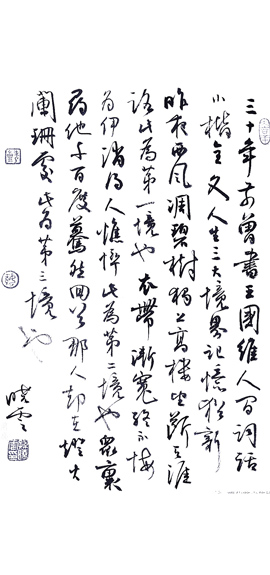 三十年前曾書王國維人間詞話
小楷全文人生三大境界記憶猶新
昨夜西風凋碧樹獨上高樓望斷天涯
路此為第一境也衣帶漸寬終不悔
為伊消得人憔悴此為第二境也眾裏
尋他千百度驀然回首那人卻在燈火
闌珊處此為第三境也
曉雲